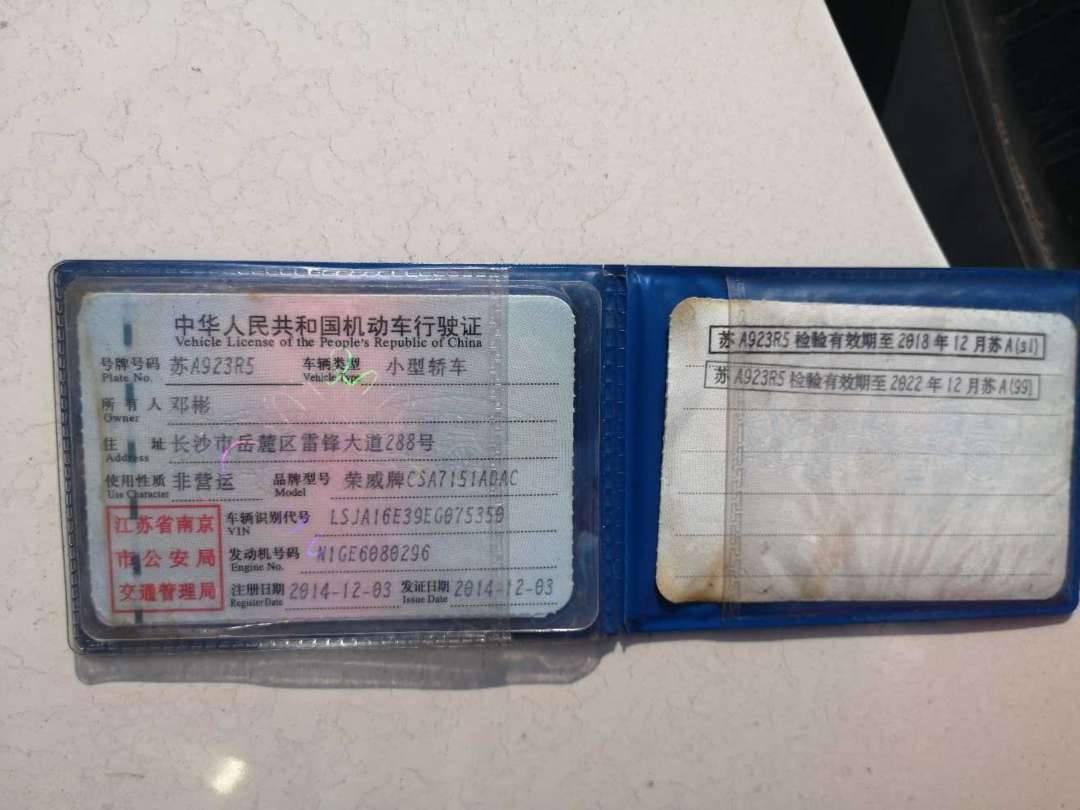 中华人民共和国机动车行驶证
Vehicle License of the People's Republic of China
号牌号码 苏A923R5 车辆类型 小型轿车
Plate No. Vehicle Type
所有人 邓彬
Owner
住址 长沙市岳麓区雷锋大道288号
Address
使用性质 非营运 品牌型号 荣威牌CSA7151ADAC
Use Character Model
江苏省南京
市公安局
交通管理局
车辆识别代号 LSJA16E39EG075350
VIN
发动机号码 N1GE6080296
Engine No.
注册日期 2014-12-03 发证日期 2014-12-03
Register Date Issue Date
苏A923R5检验有效期至2018年12月苏A(s1)
苏A923R5检验有效期至2022年12月苏A(99)